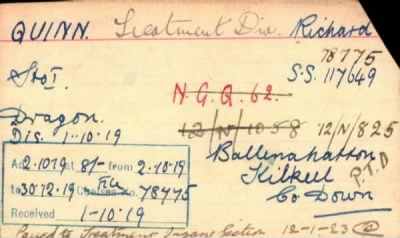 QUINN. Treatment Div. Richard
78775
Sto I. S.S. 117649
N.G.Q. 62.
Dragon. 12/N/1058 12/N/825
Dis. 1-10-19
Ballinahatton
A 2.10.19 at 8/- from 2.10.19
Kilkeel P.T.O
to 30.12.19 Chelsea No. 78775
Co Down
Received 1-10-19
Passed to Treatment Insane Section 12-1-23